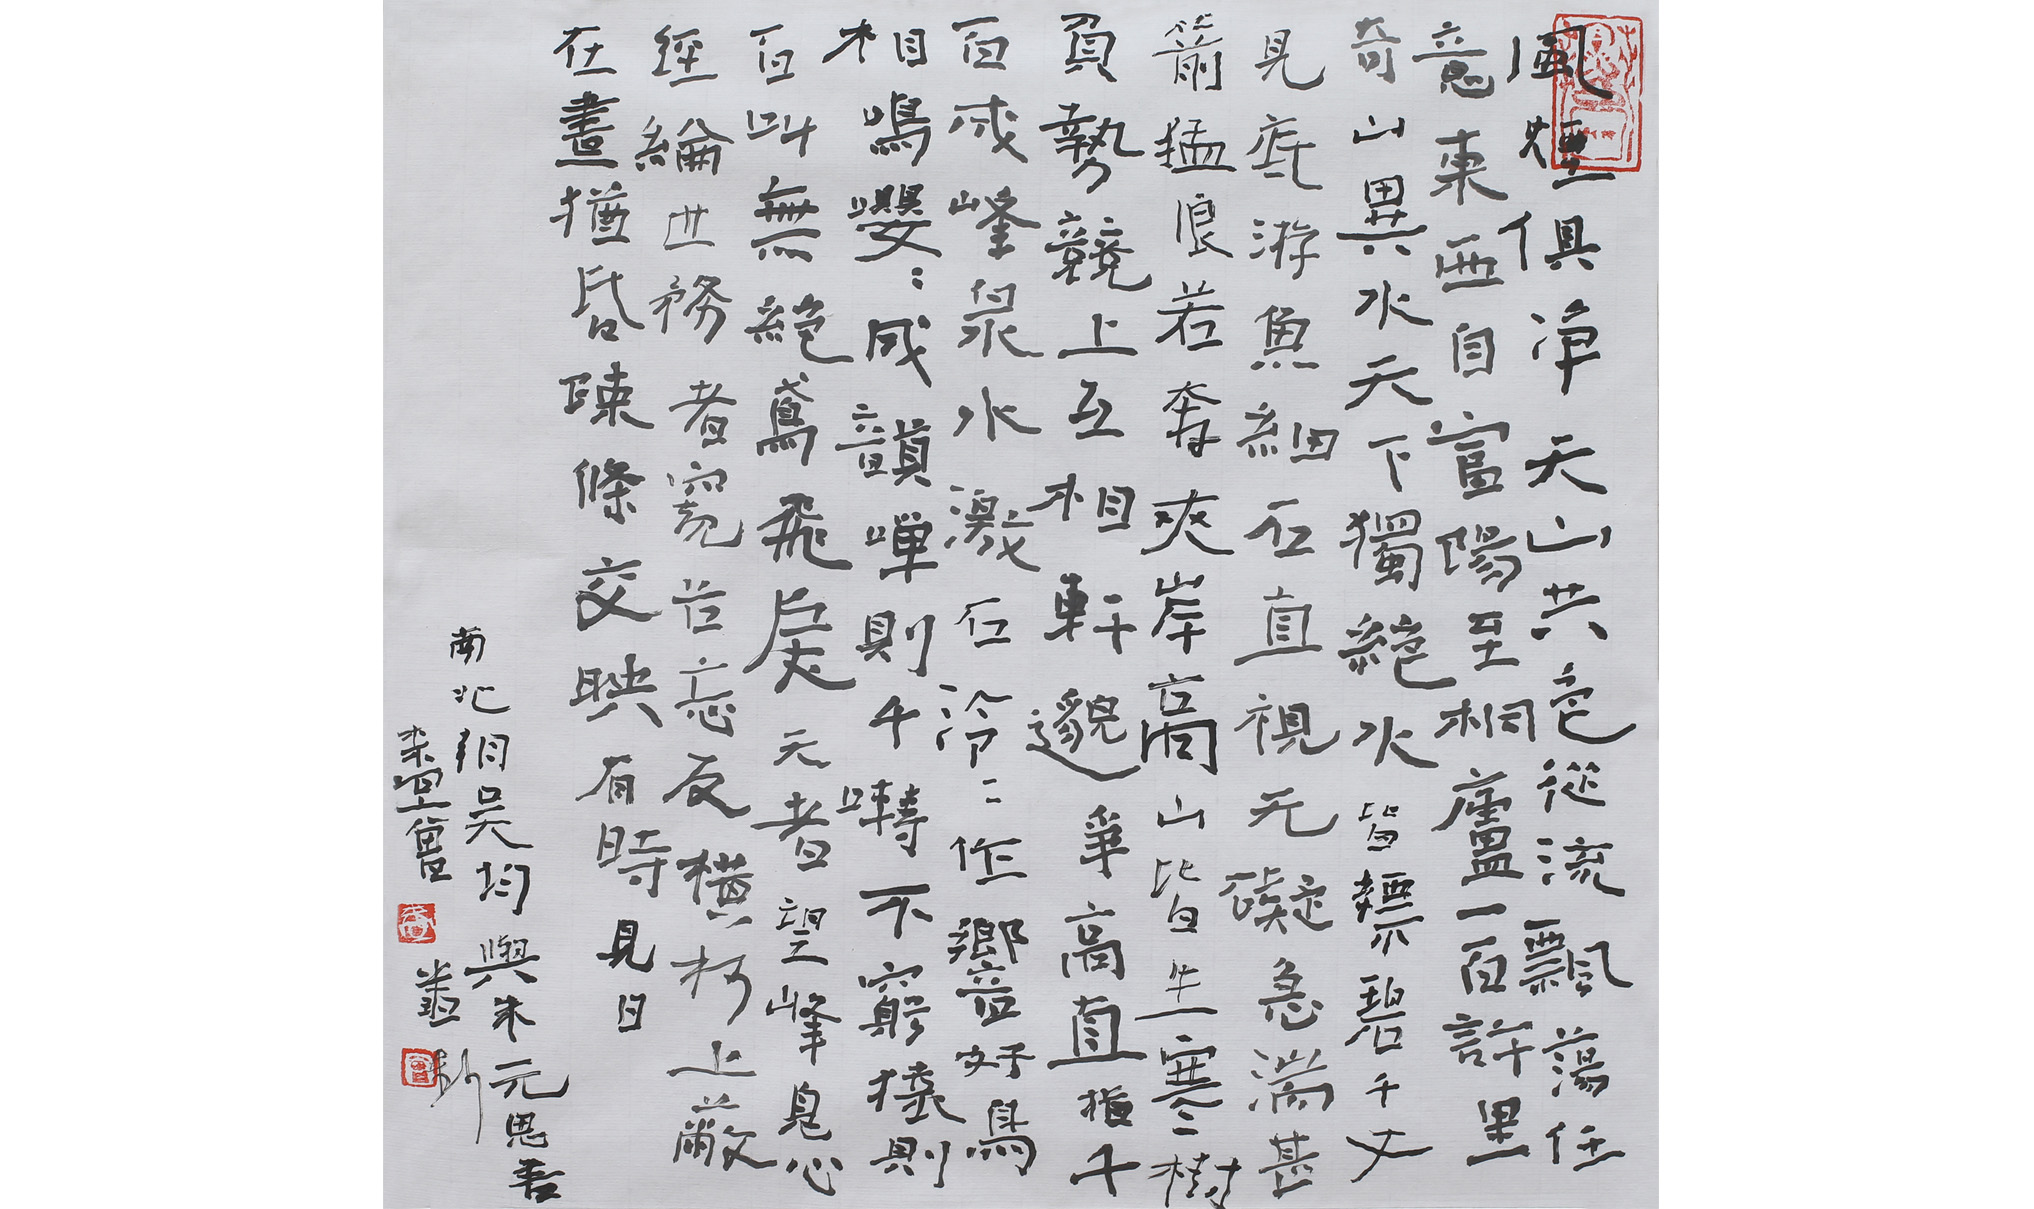 風煙俱淨天山共色從流飄蕩任
意東西自富陽至桐廬一百許里
奇山異水天下獨絕水皆縹碧千丈
見底游魚細石直視无礙急湍甚
箭猛浪若奔夾岸高山皆生寒樹
負勢競上互相軒邈爭高直指千
百成峰泉水激石泠〻作響好鳥
相鳴嚶〻成韻蟬則千囀不窮猿則
百叫無絕鳶飛戾天者望峰息心
經綸世務者窺谷忘反橫柯上蔽
在晝猶昏疎條交映有時見日
南北朝吳均與朱元思書